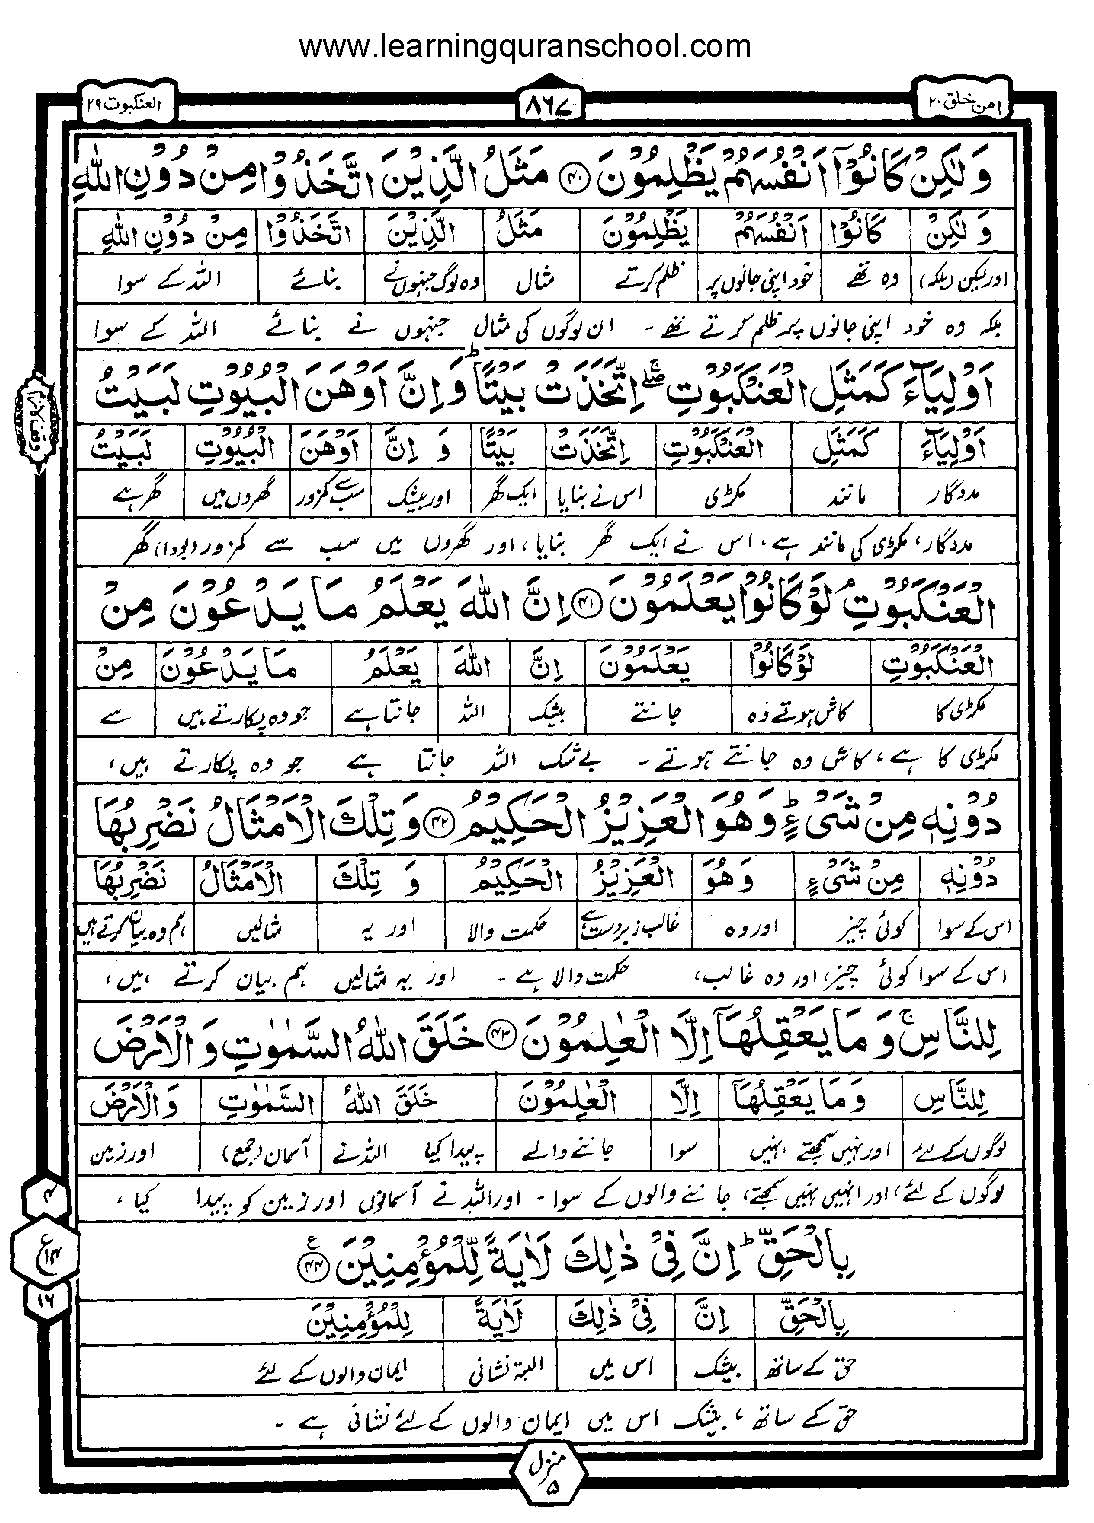 www.learningquranschool.com
امن خلق ٢٠
٨٦٧
العنكبوت ٢٩
وَلٰكِنْ كَانُوْۤا اَنْفُسَهُمْ يَظْلِمُوْنَ ﴿٤٠﴾ مَثَلُ الَّذِيْنَ اتَّخَذُوْا مِنْ دُوْنِ اللّٰهِ
وَ لٰكِنْ كَانُوْۤا اَنْفُسَهُمْ يَظْلِمُوْنَ مَثَلُ الَّذِيْنَ اتَّخَذُوْا مِنْ دُوْنِ اللّٰهِ
اور لیکن (بلکہ) وہ تھے خود اپنی جانوں پر ظلم کرتے مثال وہ لوگ جنہوں نے بنائے اللہ کے سوا
بلکہ وہ خود اپنی جانوں پر ظلم کرتے تھے ۔ ان لوگوں کی مثال جنہوں نے بنائے اللہ کے سوا
اَوْلِيَآءَ كَمَثَلِ الْعَنْكَبُوْتِ ۖۚ اِتَّخَذَتْ بَيْتًا ؕ وَاِنَّ اَوْهَنَ الْبُيُوْتِ لَبَيْتُ
اَوْلِيَآءَ كَمَثَلِ الْعَنْكَبُوْتِ اِتَّخَذَتْ بَيْتًا وَ اِنَّ اَوْهَنَ الْبُيُوْتِ لَبَيْتُ
مددگار مانند مکڑی اس نے بنایا ایک گھر اور بیشک سب سے کمزور گھروں میں گھر ہے
مددگار، مکڑی کی مانند ہے، اس نے ایک گھر بنایا، اور گھروں میں سب سے کمزور (بودا) گھر
الْعَنْكَبُوْتِ ۘ لَوْ كَانُوْا يَعْلَمُوْنَ ﴿٤١﴾ اِنَّ اللّٰهَ يَعْلَمُ مَا يَدْعُوْنَ مِنْ
الْعَنْكَبُوْتِ لَوْ كَانُوْا يَعْلَمُوْنَ اِنَّ اللّٰهَ يَعْلَمُ مَا يَدْعُوْنَ مِنْ
مکڑی کا کاش ہوتے وہ جانتے بیشک اللہ جانتا ہے جو وہ پکارتے ہیں سے
مکڑی کا ہے، کاش وہ جانتے ہوتے ۔ بے شک اللہ جانتا ہے جو وہ پکارتے ہیں،
دُوْنِهٖ مِنْ شَیْءٍ ؕ وَهُوَ الْعَزِيْزُ الْحَكِيْمُ ﴿٤٢﴾ وَتِلْكَ الْاَمْثَالُ نَضْرِبُهَا
دُوْنِهٖ مِنْ شَیْءٍ وَهُوَ الْعَزِيْزُ الْحَكِيْمُ وَ تِلْكَ الْاَمْثَالُ نَضْرِبُهَا
اس کے سوا کوئی چیز اور وہ غالب زبردست حکمت والا اور یہ مثالیں ہم وہ بیان کرتے ہیں
اس کے سوا کوئی چیز، اور وہ غالب، حکمت والا ہے ۔ اور یہ مثالیں ہم بیان کرتے ہیں،
لِلنَّاسِ ۚ وَمَا يَعْقِلُهَاۤ اِلَّا الْعٰلِمُوْنَ ﴿٤٣﴾ خَلَقَ اللّٰهُ السَّمٰوٰتِ وَالْاَرْضَ
لِلنَّاسِ وَمَا يَعْقِلُهَاۤ اِلَّا الْعٰلِمُوْنَ خَلَقَ اللّٰهُ السَّمٰوٰتِ وَالْاَرْضَ
لوگوں کے لئے اور نہیں سمجھتے انہیں سوا جاننے والے پیدا کیا اللہ نے آسمان (جمع) اور زمین
لوگوں کے لئے، اور انہیں نہیں سمجھتے، جاننے والوں کے سوا ۔ اور اللہ نے آسمانوں اور زمین کو پیدا کیا،
بِالْحَقِّ ؕ اِنَّ فِیْ ذٰلِكَ لَاٰيَةً لِّلْمُؤْمِنِيْنَ ﴿٤٤﴾ ع
بِالْحَقِّ اِنَّ فِیْ ذٰلِكَ لَاٰيَةً لِّلْمُؤْمِنِيْنَ
حق کے ساتھ بیشک اس میں البتہ نشانی ایمان والوں کے لئے
حق کے ساتھ، بیشک اس میں ایمان والوں کے لئے نشانی ہے ۔
٤
ع ١٤
١٦
منزل ٥